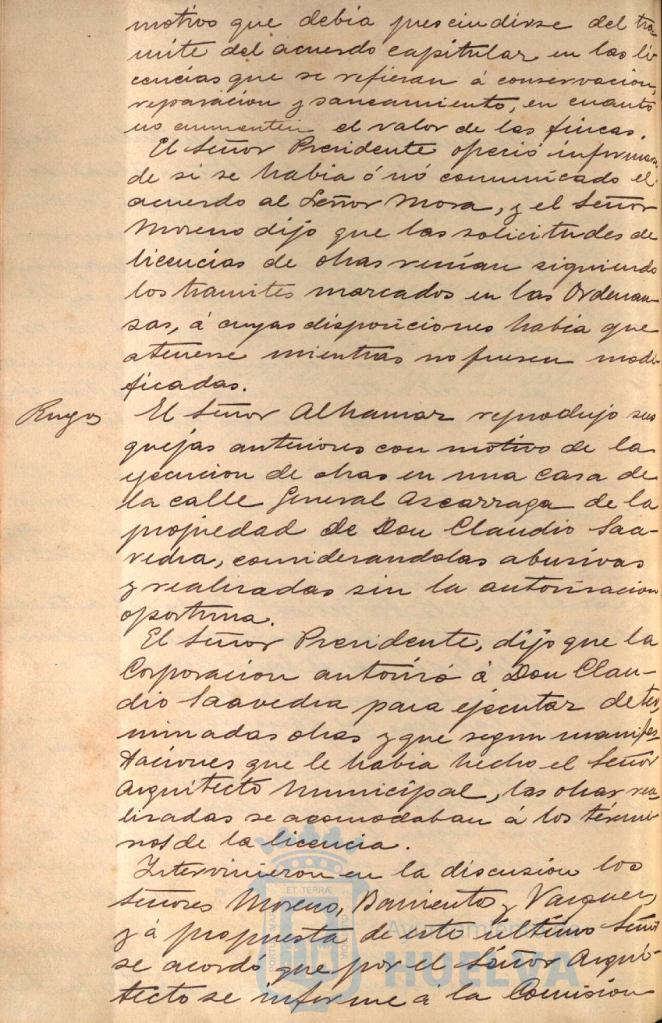 motivo que debia prescindirse del tra-
mite del acuerdo capitular en las li-
cencias que se refieran á conservacion,
reparacion y saneamiento, en cuanto
no aumenten el valor de las fincas.
El Señor Presidente ofreció informar-
de si se habia ó nó comunicado el
acuerdo al Señor Mora, y el Señor
Moreno dijo que las solicitudes de
licencias de obras venian siguiendo
los tramites marcados en las Ordenan-
sas, á cuyas disposiciones habia que
atenerse mientras no fuesen modi-
ficadas.
Ruegos
El Señor Alhamar reprodujo sus
quejas anteriores con motivo de la
ejecucion de obras en una casa de
la calle General Azcarraga de la
propiedad de Don Claudio Saa-
vedra, considerandolas abusivas
y realizadas sin la autorisacion
oportuna.
El Señor Presidente, dijo que la
Corporacion autorisó á Don Clau-
dio Saavedra para ejecutar deter-
minadas obras y que segun manifes-
taciones que le habia hecho el Señor
Arquitecto Municipal, las obras rea-
lisadas se acomodaban á los térmi-
nos de la licencia.
Intervinieron en la discusion los
Señores Moreno, Barriento y Vazquez,
y á propuesta de este último Señor
se acordó que por el Señor Arqui-
tecto se informe a la Comision
Ayuntamiento de
HUELVA